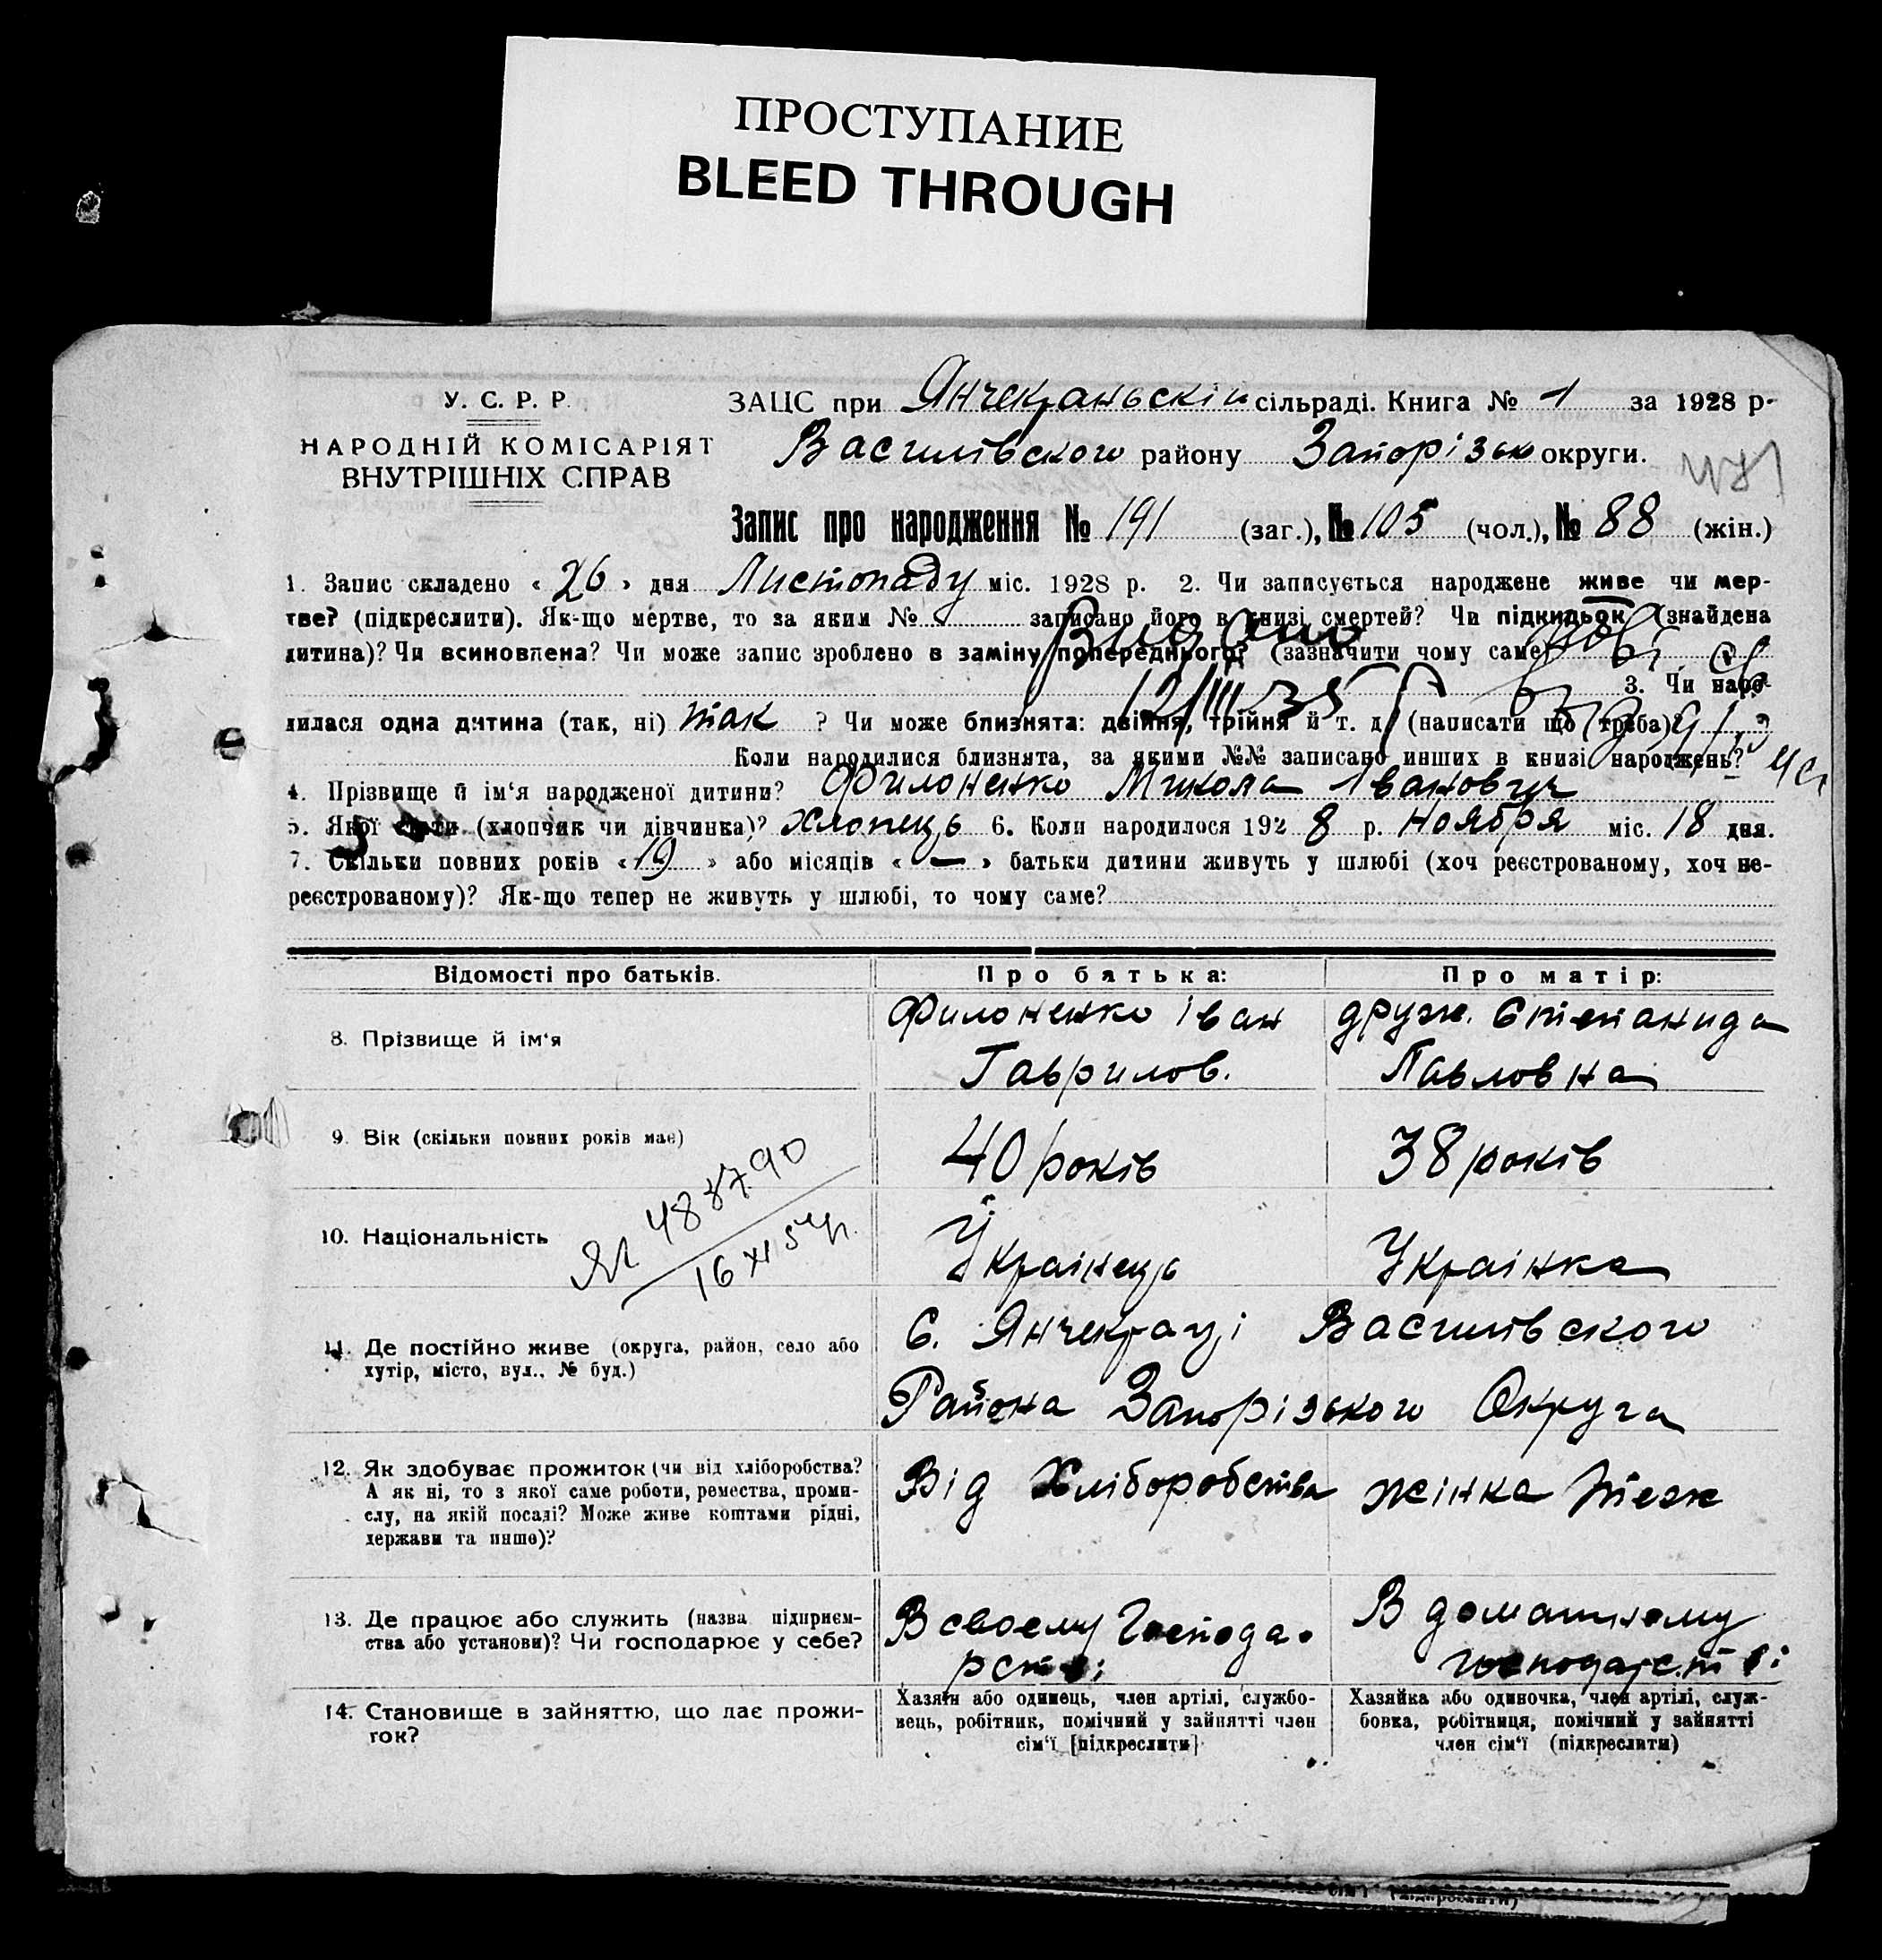 ПРОСТУПАНИЕ
BLEED THROUGH
У. С. Р. Р.
НАРОДНІЙ КОМІСАРІЯТ
ВНУТРІШНІХ СПРАВ
ЗАЦС при Янчекраньскій сільраді. Книга № 1 за 1928 р.
Василівского району Запорізьк округи.
Запис про народження № 191 (заг.), № 105 (чол.), № 88 (жін.)
1. Запис складено « 26 » дня Листопаду міс. 1928 р. 2. Чи записується народжене живе чи мер-
тве? (підкреслити). Як-що мертве, то за яким № записано його в книзі смертей? Чи підкидьок (знайдена
дитина)? Чи всиновлена? Чи може запис зроблено в заміну попереднього? (зазначити чому саме)
Видано
12/III 35
3. Чи наро-
дилася одна дитина (так, ні) так ? Чи може близнята: двійня, трійня й т. д. (написати що треба)?
Коли народилися близнята, за якими №№ записано инших в книзі народжень?
4. Прізвище й ім'я народженої дитини? Филоненко Микола Іванович
5. Якої стати (хлопчик чи дівчинка)? Хлопець 6. Коли народилося 192 8 р. Ноября міс. 18 дня.
7. Скільки повних років « 19 » або місяців « — » батьки дитини живуть у шлюбі (хоч реєстрованому, хоч не-
реєстрованому)? Як-що тепер не живуть у шлюбі, то чому саме?
Відомості про батьків. Про батька: Про матір:
8. Прізвище й ім'я
Филоненко Іван
Гаврилов.
друж. Степанида
Павловна
9. Вік (скільки повних років має) 40 років 38 років
ЯЛ 488790
16 XI 54 р.
10. Національність Українець Українка
11. Де постійно живе (округа, район, село або
хутір, місто, вул., № буд.)
С. Янчекраці Василівского
Района Запорізького Округа
12. Як здобуває прожиток (чи від хліборобства?
А як ні, то з якої саме роботи, ремества, проми-
слу, на якій посаді? Може живе коштами рідні,
держави та инше)?
Від Хліборобства жінка теж
13. Де працює або служить (назва підприєм-
ства або установи)? Чи господарює у себе?
В своєму Господа-
рстві
В домашньому
господарстві
14. Становище в зайняттю, що дає прожи-
ток?
Хазяїн або одинець, член артілі, службо-
вець, робітник, помічний у зайнятті член
сім'ї [підкреслити]
Хазяйка або одиночка, член артілі, служ-
бовка, робітниця, помічний у зайнятті
член сім'ї (підкреслити)
сім'ї (підкреслити)